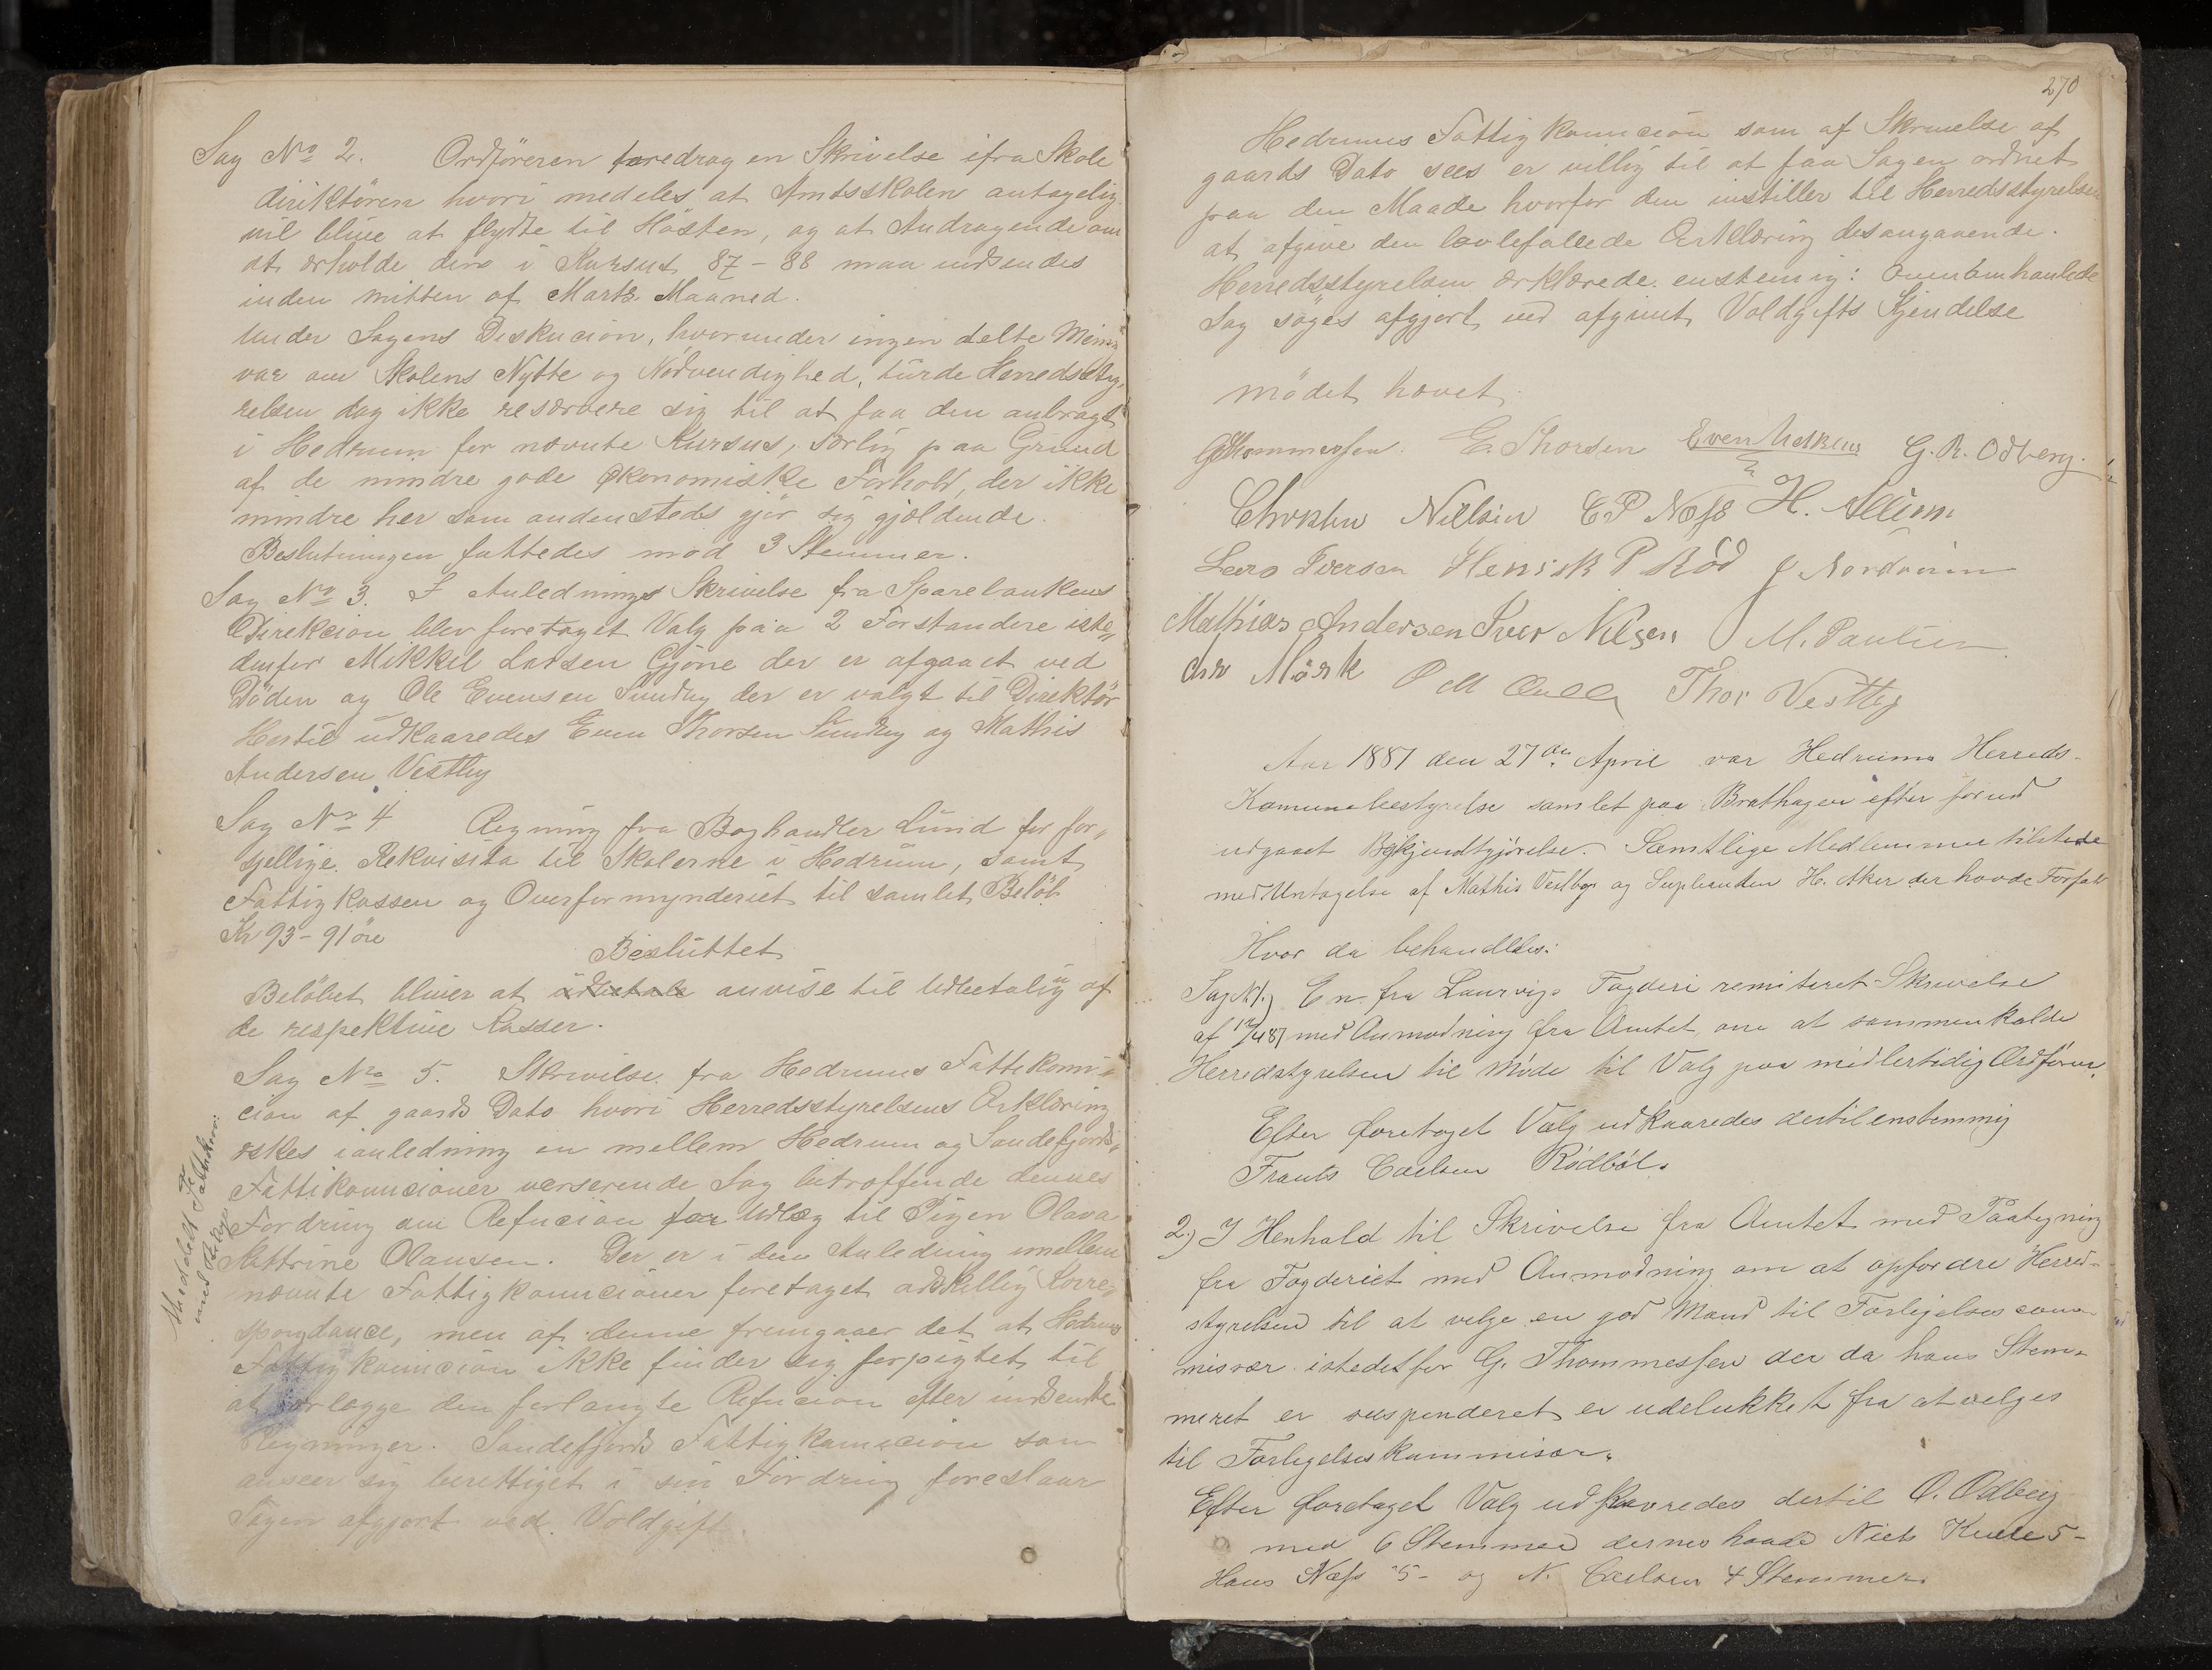 Sag No 2. Ordföreren foredrog en Skrivelse ifra Skole
diriktören hvori medeles at Amtsskolen antagelig
vil blive at flydte til Hösten, og at Andragende om
at ærholde den i Kursus 87-88 maa indsendes
inden mitten af Marts Maaned.
Under Sagens Diskucion, hvorunder ingen delte Menin
var om Skolens Nytte og Nödvendighed, turde Herredssty,
relsen dog ikke resærvere sig til at faa den anbragt
i Hedrum for nævnte Kursus, særlig paa Grund
af de mindre gode Økonomiske Forhold, der ikke
mindre her som andensteds gjör sig gjældende.
Beslutningen fattedes mod 3 Stemmer.
Sag No 3. I Anlednings Skrivelse fra Sparebankens
Direkcion blev foretaget Valg paa 2 Forstandere iste,,
denfor Mikkel Larsen Gjöne der er afgaaet ved
Döden og Ole Evensen Sundby der er valgt til Direktör
Hertil udkaaredes Even Thorsen Sundby og Mathis
Andersen Vestby
Sag No 4 Regning fra Boghandler Lund for for,,
sjellige Rekvisita til Skolerne i Hedrum, samt
Fattigkassen og Overformynderiet til samlet Belöb
Kr 93-91 öre
Besluttet
Belöbet bliver at udbetale anvise til Udbetaling af
de respektive Kasser.
Sag No 5. Skrivelse fra Hedrums Fattikomi-
cion af gaards Dato hvori Herredsstyrelsens Ærklæring
æskes ianledning en mellem Hedrum og Sandefjords,
Fattikomicioner værserende Sag betræffende dennes
Fordring om Refucion for Udlæg til Pigen Olava
Kattrine Olausen. Der er i den Anledning imellem
nævnte Fattigkomicioner foretaget adskillig Korre,,
spondance, men af denne fremgaaer det at Hedrums
Fattigkomicion ikke finder sig forpigtet til
at forlægge den forlangte Refucion efter indsendte
Regninger. Sandefjords Fattigkomicion som
anseer sig berettiget i sin Fordring foreslaar
Sagen afgjort ved Voldgift.
Meddelt Fattikom:
med Bilage
270
Hedrums Fattigkomicion som af Skrivelse af
gaards Dato sees er villig til at faa Sagen ordnet
paa den Maade hvorfor den instiller til Herredsstyrelsen
at afgive den lovbefallede Ærklæring desangaaende.
Herredsstyrelsen ærklærede enstemig: Omenhanlede
Sag söges afgjort ved afgivet Voldgifts Kjendelse
Mödet hævet.
GThommessen. E. Thorsen Even G. R. Odberg.
Christen Nielsen C P Næss H. Allum
Lars Iversen Henrik P Röd J Nordrum
Mathias Andersen Iver Nilsen M. Paulsen
Mörk O M Thor Vestby
Aar 1887 den 27de April var Hedrums Herreds-
Komunebestyrelse samlet paa Brathagen efter forud
udgaaet Bekjendtgjörelse. Samtlige Medlemmer tilstede
med Untagelse af Mathis Vestby og Supleanten H. Aker der havde Forfald
Hvor da behandledes:
Sag N1.) En fra Laurvigs Fogderi remiteret Skrivelse
af 12/4 87 med Anmodning fra Amtet om at sammenkalde
Herredstyrelsen til Möde til Valg paa midlertidig Ordförer.
Efter foretaget Valg udkaaredes dertil enstemmig
Frants Carlsen Rödböl.
2.) I Henhold til Skrivelse fra Amtet med Paategning
fra Fogderiet med Anmodning om at opfordre Herred-
styrelsen til at velge en god Mand til Forligelses com-
misær istedetfor G. Thommessen der da hans Stem-
meret er suspenderet er udelukket fra at velges
til Forligelseskommisær.
Efter foretaget Valg udkaaredes dertil O. Odberg
med 6 Stemmer dernes havde Niels 5-
Hans Næss 5- og N. Carlsen 4 Stemmer.